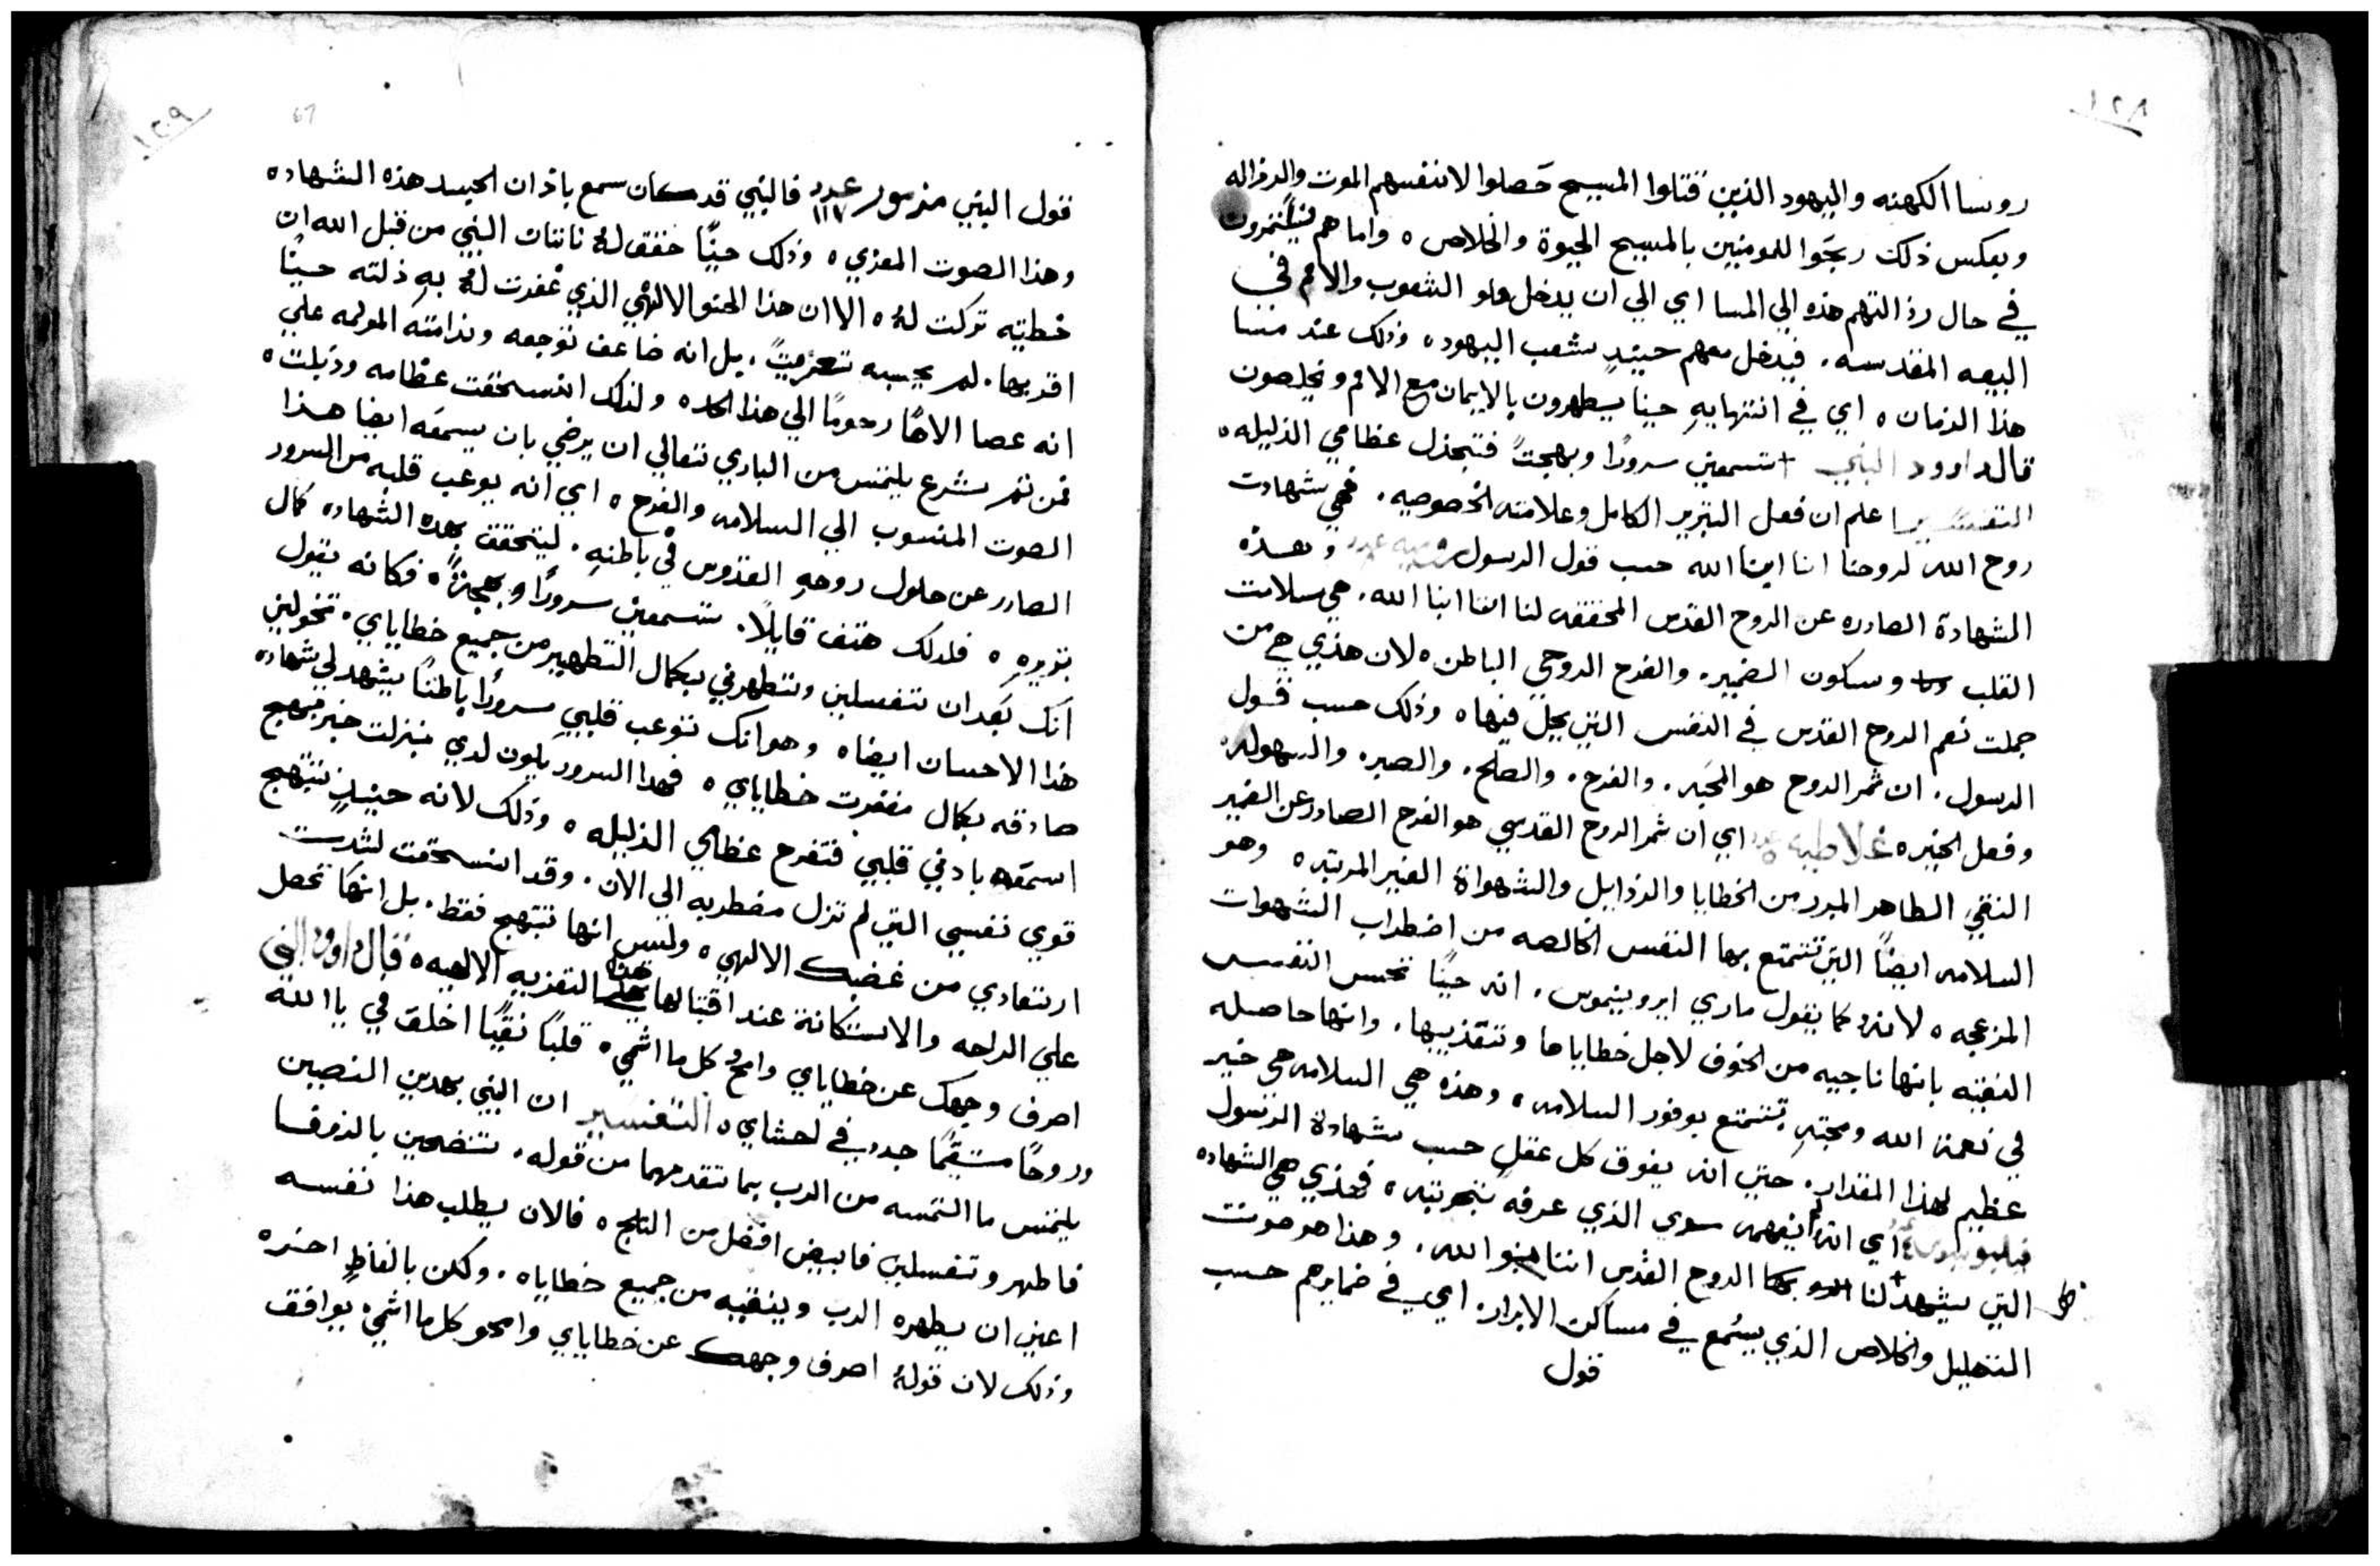 ١٢٨
روسا الكهنه واليهود الذين قتلوا المسيح حَصلوا لانفسهم الموت والرذاله
وبعكس ذلك ربحَوا للمومنين بالمسيح الحيوة والخلاص ٥ واما هم
في حال رذالتهم هذه الي المسا اي الي ان يدخل ملو الشعوب والامم في
البيعه المقدسه . فيدخل معهم حينيدٍ شعب اليهود ٥ وذلك عند مسا
هذا الزمان ٥ اي في انتهايهِ حينا يطهرون بالايمان مع الامم ويخلصون
قال داوود النبي + تسمعني سرورًا وبهجتً فتبجذل عظامي الذليله ٥
التفسير اعلم ان فعل التبرير الكامل وعلامته الخصوصيه . فهي شهادت
روح الله لروحنا اننا ابنا الله حسب قول الرسول وهذه
الشهادة الصادره عن الروح القدس المحققه لنا اننا ابنا الله . هي سلامت
القلب وسكون الضمير . والفرح الروحي الباطن ٥ لان هذي هي من
جملت نعم الروح القدس في النفس التي يحل فيها ٥ وذلك حسب قول
الرسول . ان ثمر الروح هو المحَبه . والفرح . والصلح . والصبر . والسهوله .
وفعل الخير ٥ غلاطيه اي ان ثمر الروح القدسي هو الفرح الصادر عن الضمير
النقي الطاهر المبرر من الخطايا والرذايل والشهواة الغير المرتبه ٥ وهو
السلامه ايضًا التي تتمتع بها النفس الخالصه من اضطراب الشهوات
المزعجه ٥ لانه كما يقول ماري ايرونيموس . انه حينًا تحس النفس
النقيه بانها ناجيه من الخوف لاجل خطاياها وتتقذيبها . وانها حاصله
في نعمة الله ومحبتهِ تتمتع بوفور السلامه ٥ وهذه هي السلامه هي خير
عظيم لهذا المقدار . حتي انه يفوق كل عقل حسب شهادة الرسول
اي انه لم يفهمه سوي الذي عرفهُ بتجربته ٥ فهذي هي الشهاده
التي يشهد لنا بها الروح القدس اننا بنوا الله . وهذا هو صوت
التهليل والخلاص الذي يسُمع في مساكن الابرار . اي في ضمايرهم حسب
قول
١٢٩
67
قول النبي مزمور عدد ١١٧ فالنبي قد كان سمع باذان الجسد هذه الشهاده
وهذا الصوت المعزي ٥ وذلك حينًا حقق لهُ ناتان النبي من قبل الله ان
خطيته تركت لهُ ٥ الا ان هذا الحنو الالهي الذي غفرت لهُ بهِ ذلته حينًا
اقر بها . لم يحسبه تعزيةً . بل انه ضاعف توجعه وندامته المولمه علي
انه عصا الاهًا رحومًا الي هذا الحد ٥ ولذلك انسحقت عظامه وذبلت ٥
فمن ثم شرع يلتمس من الباري تعالي ان يرضي بان يسمعَه ايضا هذا
الصوت المنسوب الي السلامه والفرح ٥ اي انه يوعب قلبه من السرور
الصادر عن حلول روحهِ القدوس في باطنهِ . ليتحقق بهده الشهاده كمال
تبريره ٥ فلدلك هتف قايلًا . تسمعني سرورًا وبهجةً ٥ فكانه يقول
انك بَعد ان تغسلني وتطهرني بكمال التطهير من جميع خطاياي . تخولني
هذا الاحسان ايضا ٥ وهو انك توعب قلبي سرورًا باطنًا يشهد لي شهاده
صادقه بكمال مغفرت خطاياي ٥ فهدا السرور يكون لدي بمنزلت خبر مبهج
اسمعَه باذني قلبي فتفرح عظامي الذليله ٥ وذلك لانه حينيدٍ تبتهج
قوي نفسي التي لم تزل مضطربه الي الان . وقد انسحقت لشدت
ارتعادي من غضبك الالهي ٥ وليس انها تبتهج فقط . بل انها تحصل
علي الراحه والاستكانة عند اقتبالها هذا التعزيه الالهيه ٥ قال داوود النبي
اصرف وجهك عن خطاياي وامح كل ما اثمي . قلبًا نقيًا اخلق في يا الله
وروحًا مستقيمًا جدد في احشاي ٥ التفسير ان النبي بهدين النصيين
يلتمس ما التمسه من الرب بما تقدمهما من قوله . تنضحني بالزوفا
فاطهر وتغسلني فابيض افضل من الثلج ٥ فالان يطلب هذا نفسه
اعني ان يطهره الرب وينقيه من جميع خطاياه . ولكن بالفاظٍ اخره
وذلك لان قولهُ اصرف وجهك عن خطاياي وامحو كل ما اثمي . يوافق